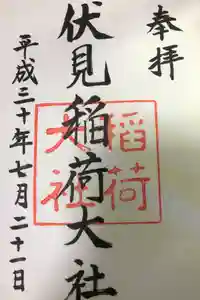 奉拝
伏見稲荷大社
稲荷
大社
平成三十年七月二十一日